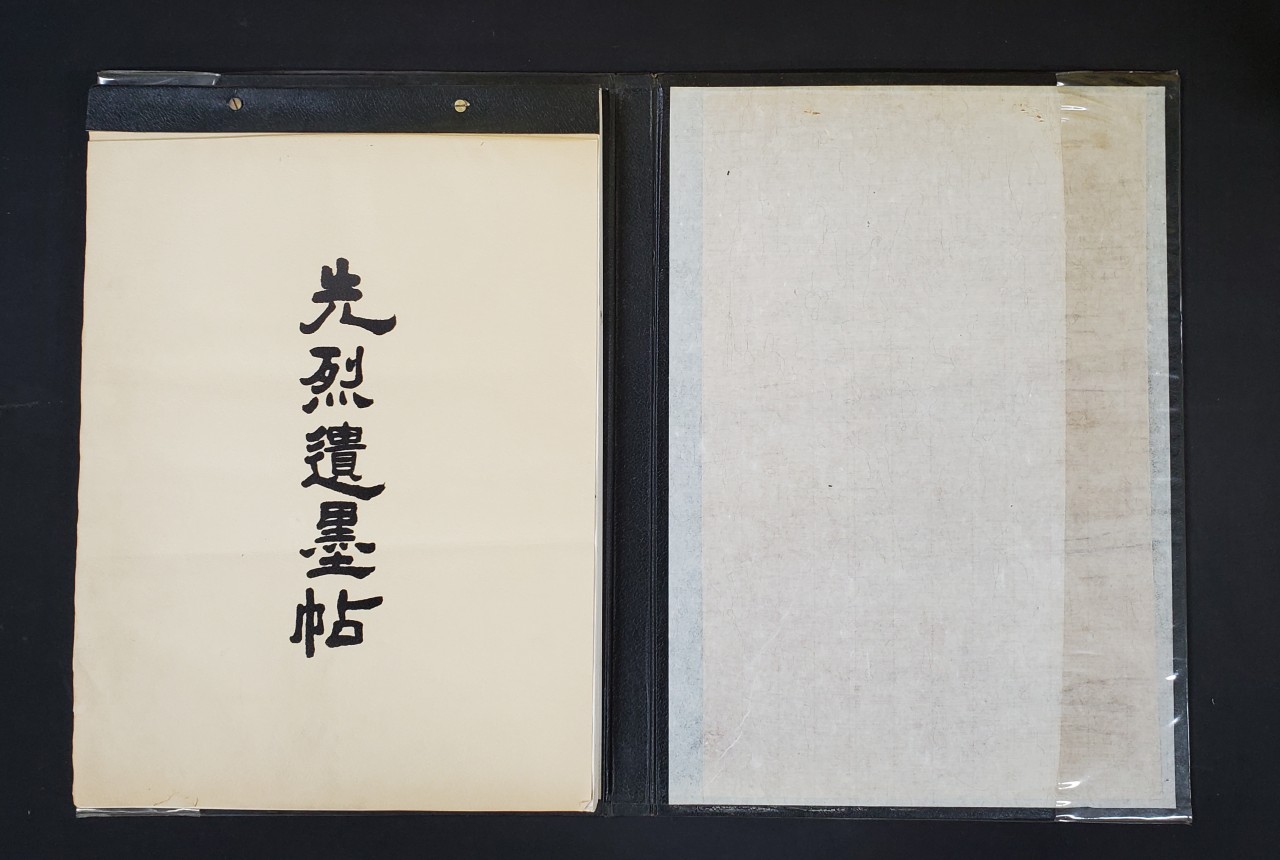 先烈遺墨帖